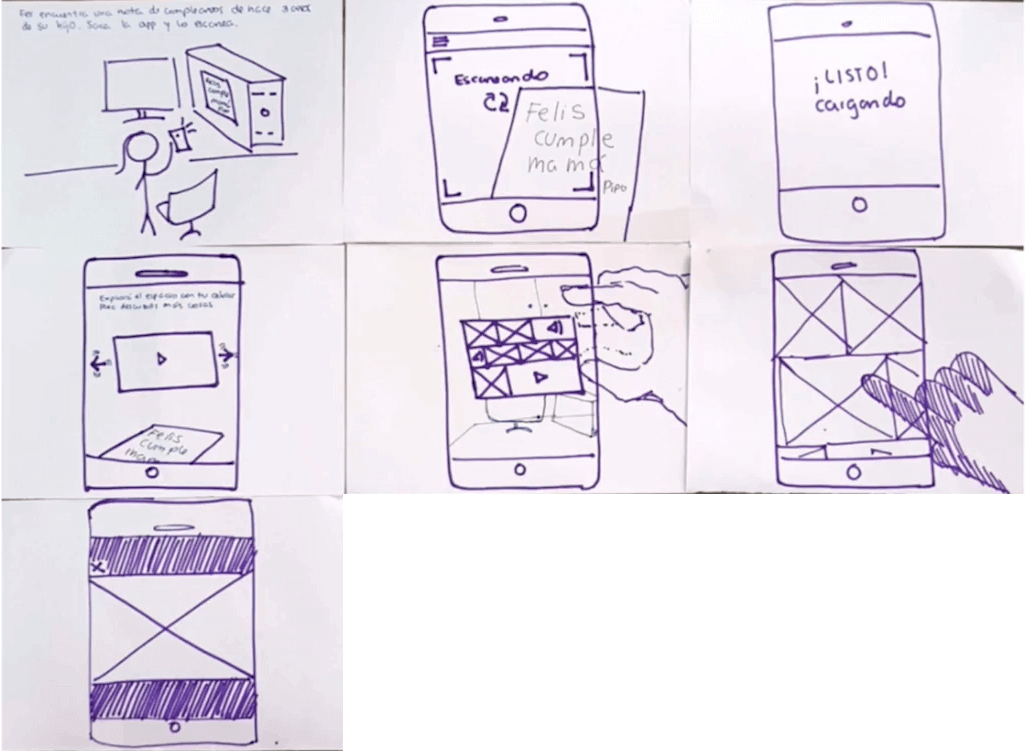 Fer encuentra una nota de cumpleaños de hace 3 años
de su hijo. Saca la app y lo escanea.
Felis
cumple
mamá
Pipo
Escaneando
Felis
cumple
mamá
Pipo
¡LISTO!
cargando
Explorá el espacio con tu celular
para descubrir más cosas
Felis
cumple
mamá